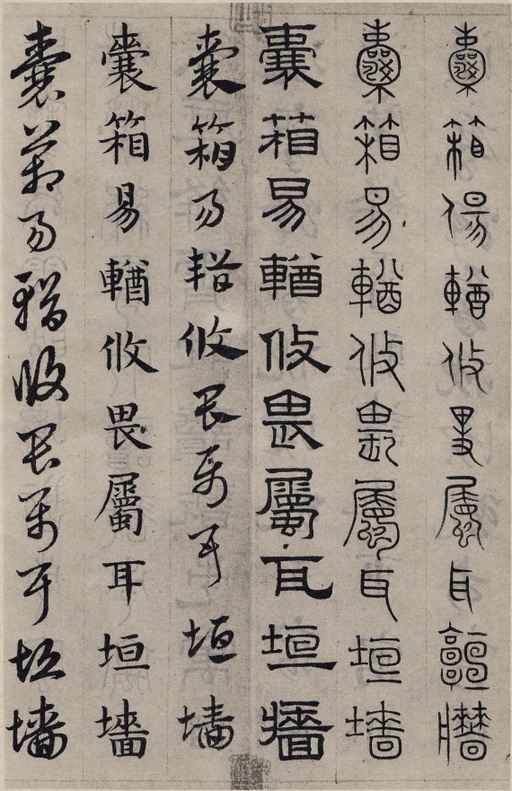 囊箱傷輶攸畏屬耳垣牆
囊箱易輶攸畏屬耳垣墻
囊葙易輶攸畏屬耳垣牆
囊箱易輶攸畏屬耳垣墻
囊箱易輶攸畏屬耳垣墻
囊箱易輶攸畏屬耳垣墻